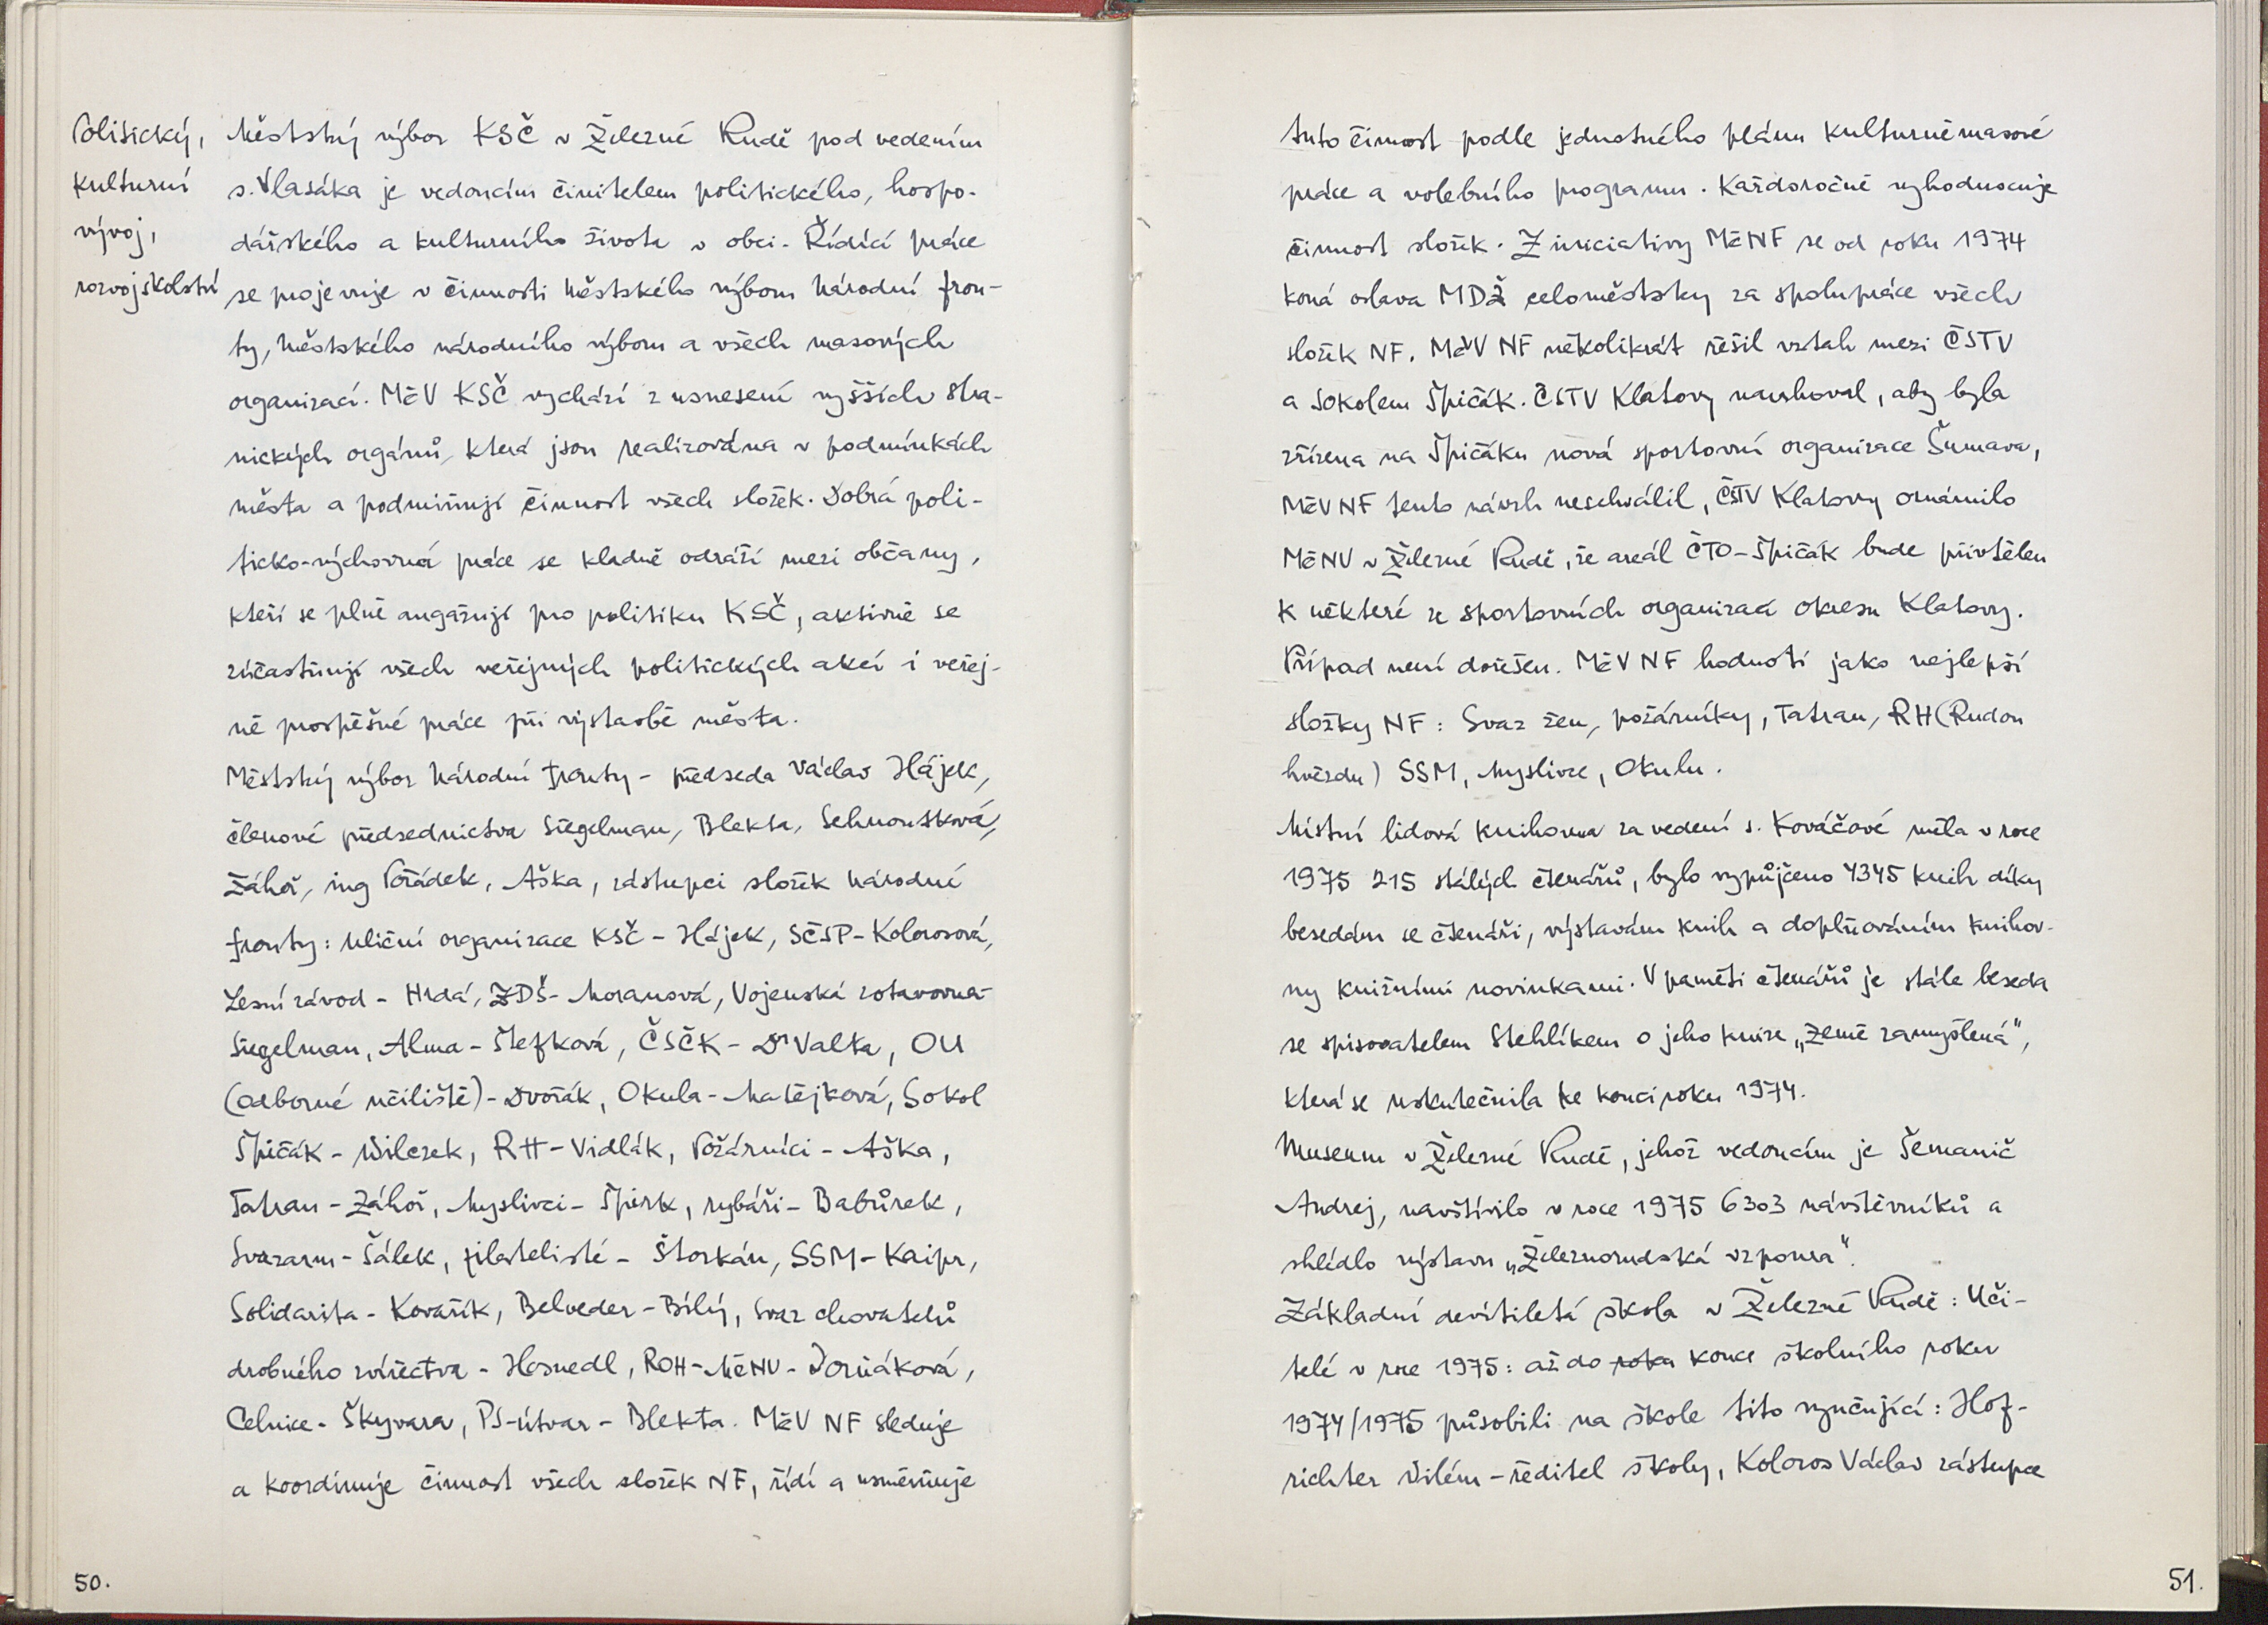 Politický,
kulturní
vývoj,
rozvoj školství
Městský výbor KSČ v Železné Rudě pod vedením
s. Vlasáka je vedoucím činitelem politického, hospo-
dářského a kulturního života v obci. Řídící práce
se projevuje v činnosti Městského výboru Národní fron-
ty, Městského národního výboru a všech masových
organizací. MěV KSČ vychází z usnesení vyšších stra-
nických orgánů, která jsou realizována v podmínkách
města a podmiňují činnost všech složek. Dobrá poli-
ticko-výchovná práce se kladně odráží mezi občany,
kteří se plně angažují pro politiku KSČ, aktivně se
zúčastňují všech veřejných politických akcí i veřej-
ně prospěšné práce při výstavbě města.
Městský výbor Národní fronty - předseda Václav Hájek,
členové předsednictva Siegelman, Blekta, Sehnoutková,
Záhoř, ing Pořádek, Aška, zástupci složek Národné
fronty: Uliční organizace KSČ - Hájek, SČSP - Kolorosová,
Lesní závod - Hrdá, ZDŠ - Moranová, Vojenská zotavovna -
Siegelman, Alma - Štefková, ČSČK - Dr Valta, OU
(odborné učiliště) - Dvořák, Okula - Matějková, Sokol
Špičák - Wilczek, RH - Vidlák, Požárníci - Aška,
Tatran - Záhoř, Myslivci - Špirk, rybáři - Babůrek,
Svazarm - Šálek, filatelisté - Štorkán, SSM - Kaipr,
Solidarita - Kovařík, Belveder - Bílý, Svaz chovatelů
drobného zvířectva - Hosnedl, ROH - MěNV - Dorňáková,
Celnice - Škyvara, PS-útvar - Blekta. MěV NF sleduje
a koordinuje činnost všech složek NF, řídí a usměrňuje
50.
tuto činnost podle jednotného plánu kulturněmasové
práce a volebního programu. Každoročně vyhodnocuje
činnost složek. Z iniciativy MěNF se od roku 1974
koná oslava MDŽ celoměstsky za spolupráce všech
složek NF. MěV NF několikrát řešil vztah mezi ČSTV
a Sokolem Špičák. ČSTV Klatovy navrhoval, aby byla
zřízena na Špičáku nová sportovní organizace Šumava,
MěV NF tento návrh neschválil, ČSTV Klatovy oznámilo
MěNV v Železné Rudě, že areál ČTO - Špičák bude přivtělen
k některé ze sportovních organizací okresu Klatovy.
Případ není dořešen. MěV NF hodnotí jako nejlepší
složky NF: Svaz žen, požárníky, Tatran, RH (Rudou
hvězdu) SSM, Myslivce, Okulu.
Místní lidová knihovna za vedení s. Kováčové měla v roce
1975 215 stálých čtenářů, bylo vypůjčeno 4345 knih díky
besedám se čtenáři, výstavám knih a doplňováním knihov-
ny knižními novinkami. V paměti čtenářů je stále beseda
se spisovatelem Stehlíkem o jeho knize „Země zamyšlená",
která se uskutečnila ke konci roku 1974.
Museum v Železné Rudě, jehož vedoucím je Šemanič
Andrej, navštívilo v roce 1975 6303 návštěvníků a
shlédlo výstavu „Železnorudská vzpoura".
Základní devítiletá škola v Železné Rudě: Uči-
telé v roce 1975: až do roku konce školního roku
1974/1975 působili na škole tito vyučující: Hof-
richter Vilém - ředitel školy, Koloros Václav zástupce
51.